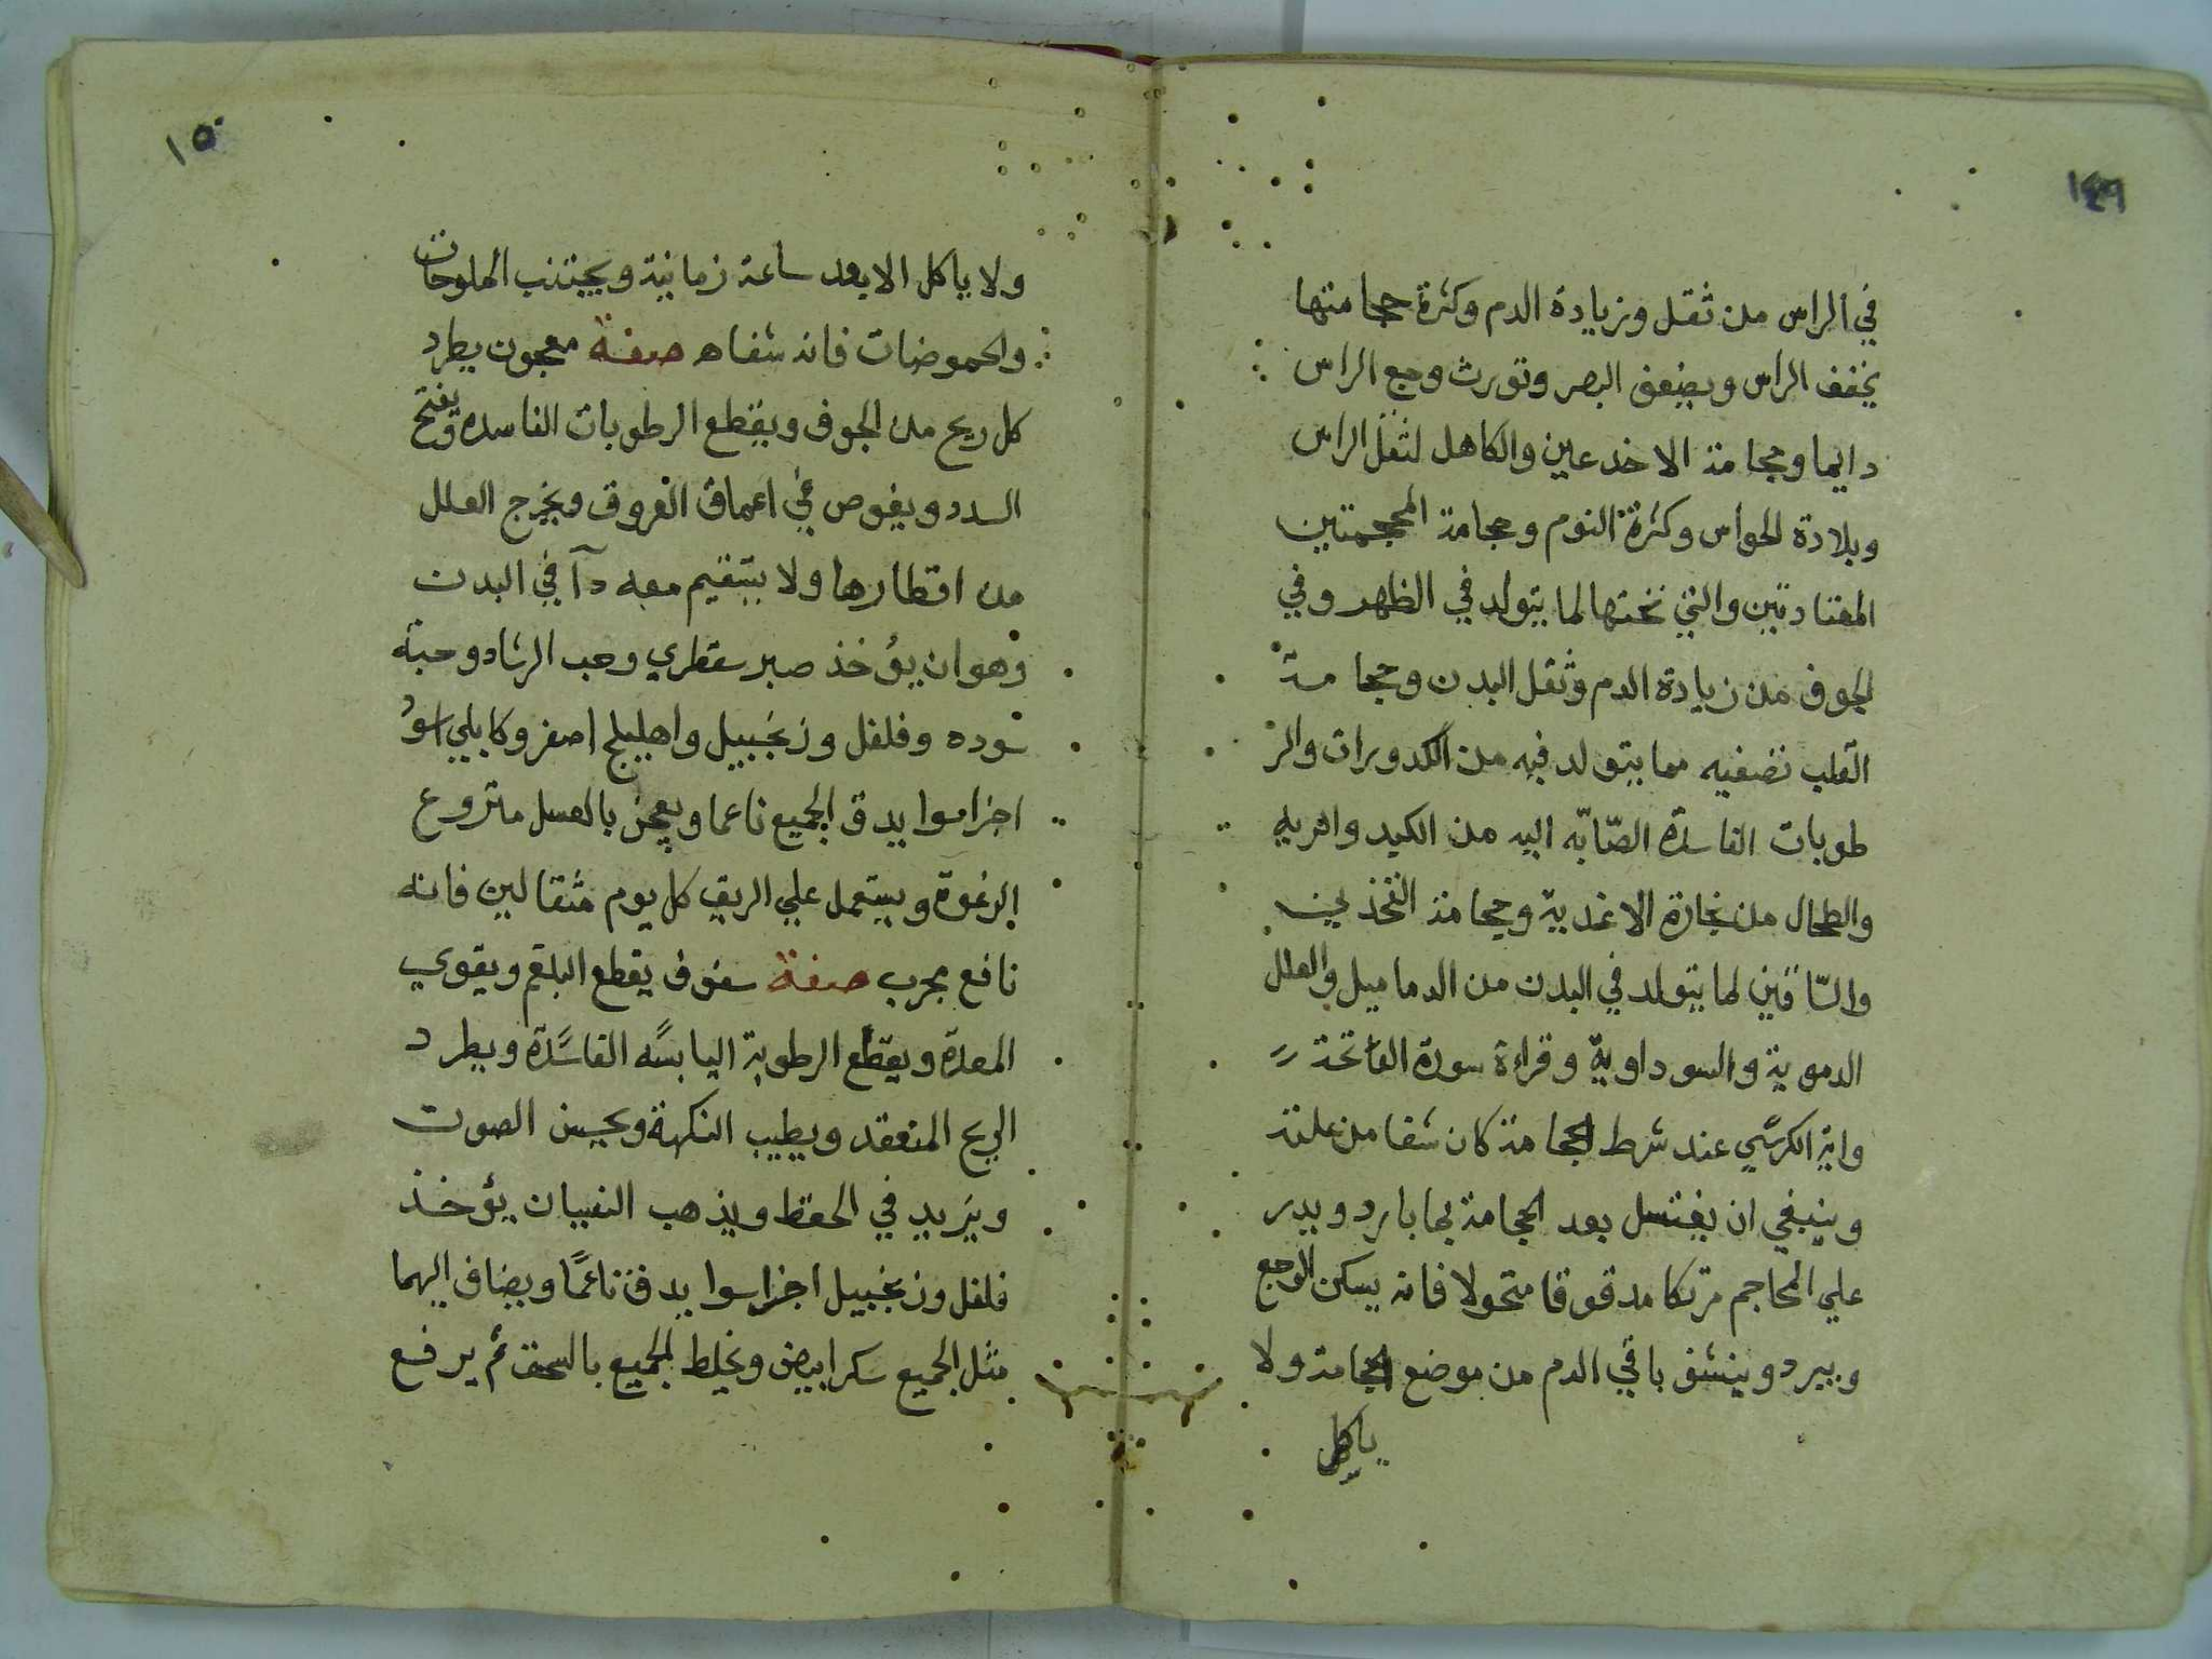 ١٤٩
في الراس من ثقل وزيادة الدم وكثرة حجامتها
يخفف الراس ويضعف البصر وتورث وجع الراس
دايما وحجامة الاخدعين والكاهل لثقل الراس
وبلادة الحواس وكثرة النوم وحجامة المحجمتين
المعتادتين والتي تحتها لما يتولد في الظهر وفي
الجوف من زيادة الدم وثقل البدن وحجامة
القلب تصفيه مما يتولد فيه من الكدورات والر
طوبات الفاسدة الصّابّه اليه من الكبد والريه
والطحال من بخارة الاغدية وحجامة الفخذين
والسّاقين لما يتولد في البدن من الدماميل والعلل
الدموية والسوداوية وقراءة سورة الفاتحة
واية الكرسي عند شرط الحجامة كان شفا من علته
وينبغي ان يغتسل بعد الحجامة بما بارد ويدر
علي المحاجم مرتكا مدقوقا متحولا فانه يسكن الوجع
ويبرد وينشف باقي الدم من موضع الحجامة ولا
ياكل
١٥٠
ولا ياكل الا بعد ساعة زمانية ويجتنب الملوحات
والحموضات فانه شفاه صفة معجون يطرد
كل ريح من الجوف ويقطع الرطوبات الفاسده ويفتح
السدد ويغوص في اعماق العروق ويخرج العلل
من اقطارها ولا يستقيم معه دآ في البدن
وهو ان يؤخذ صبر سقطري وحب الرشاد وحبة
سوده وفلفل وزنجبيل واهليلج اصفر وكابلي اسود
اجزا سوا يدق الجميع ناعما ويعجن بالعسل منزوع
الرغوة ويستعمل علي الريق كل يوم مثقالين فانه
نافع مجرب صفة سفوف يقطع البلغم ويقوي
المعدة ويقطع الرطوبة اليابسه الفاسدة ويطرد
الريح المنعقد ويطيب النكهة ويحسن الصوت
ويزيد في الحفظ ويذهب النسيان يؤخذ
فلفل وزنجبيل اجزا سوا يدق ناعمًا ويضاف اليهما
مثل الجميع سكر ابيض ويخلط الجميع بالسحق ثم يرفع